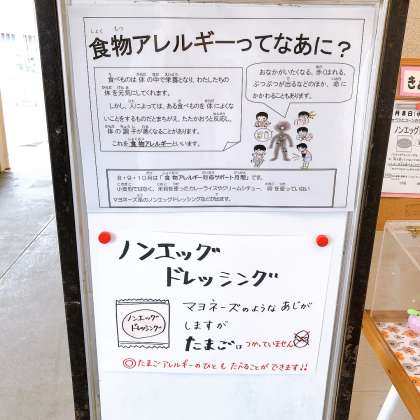 食物アレルギーってなあに？
食べものは体の中で栄養となり、わたしたちの
体を元気にしてくれます。
しかし、人によっては、ある食べものを体によくな
いことをするものだとまちがえ、たたかおうと反応し、
体の調子が悪くなることがあります。
これを食物アレルギーといいます。
おなかがいたくなる、
ぶつぶつが出るなどのほか、命に
かかわることもあります。
8・9・10月は「食物アレルギー対応サポート月間」です。
小麦粉ではなく、米粉を使ったカレーライスやクリームシチュー、卵を使っていない
マヨネーズ風のノンエッグドレッシングなどが出ます。
ノンエッグ
ドレッシング
ノンエッグ
ドレッシング
マヨネーズのようなあじが
しますが
たまごはつかっていません
◎たまごアレルギーのひともたべることができます!!